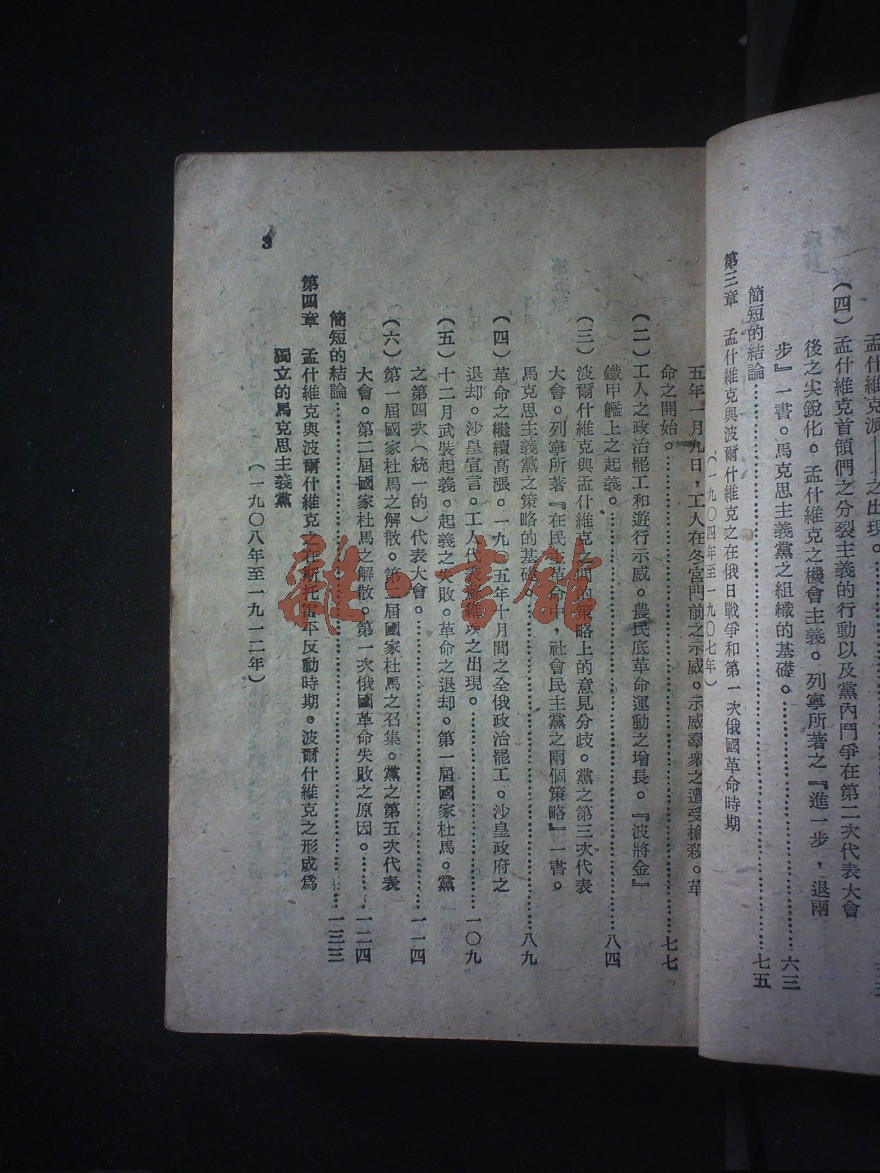 孟什維克派——之出現。
(四)孟什維克首領們之分裂主義的行動以及黨內鬥爭在第二次代表大會
後之尖銳化。孟什維克之機會主義。列寧所著之『進一步,退兩
步』一書。馬克思主義黨之組織的基礎。……六三
簡短的結論……七五
第三章 孟什維克與波爾什維克之在俄日戰爭和第一次俄國革命時期
(一九〇四年至一九〇七年)
五年一月九日,工人在冬宮門前之示威。示威羣衆之遭受槍殺。革
命之開始。……七七
(二)工人之政治罷工和遊行示威。農民底革命運動之增長。『波將金』
鐵甲艦上之起義。……八四
(三)波爾什維克與孟什維克之間的策略上的意見分歧。黨之第三次代表
大會。列寧所著『在民主革命中,社會民主黨之兩個策略』一書。
馬克思主義黨之策略的基礎……八九
(四)革命之繼續高漲。一九〇五年十月間之全俄政治罷工。沙皇政府之
退却。沙皇宣言。工人代表蘇維埃之出現。……一〇九
(五)十二月武裝起義。起義之失敗。革命之退却。第一屆國家杜馬。黨
之第四次(統一的)代表大會。……一一四
(六)第一屆國家杜馬之解散。第二屆國家杜馬之召集。黨之第五次代表
大會。第二屆國家杜馬之解散。第一次俄國革命失敗之原因。……一二四
簡短的結論……一三三
第四章 孟什維克與波爾什維克之在斯托雷平反動時期。波爾什維克之形成爲
獨立的馬克思主義黨
(一九〇八年至一九一二年)
3
雜·書館